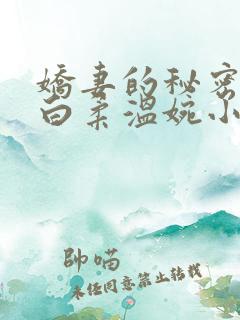 嬌妻的秘密
白柔溫婉小
帥喵
未經同意禁止轉載